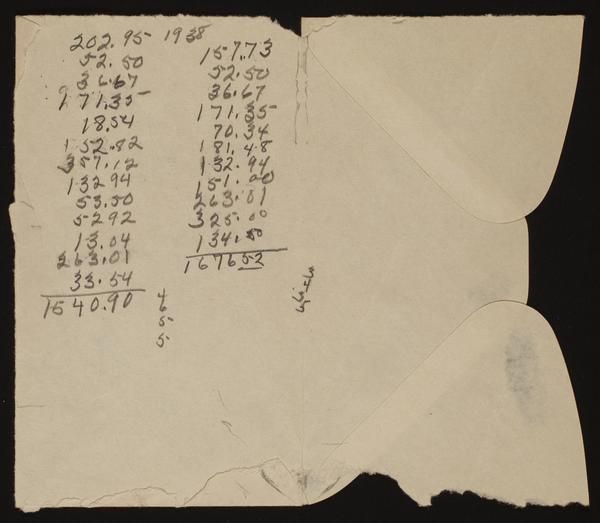 202.95 1938
52.50
36.67
171.35
18.54
152.82
357.12
132 94
53.50
52 92
13.04
263.01
33.54
1540.90
157.73
52.50
36.67
171.35
70.34
181.48
132.94
151.00
263.01
325.00
134.50
167652
4
6
5
5